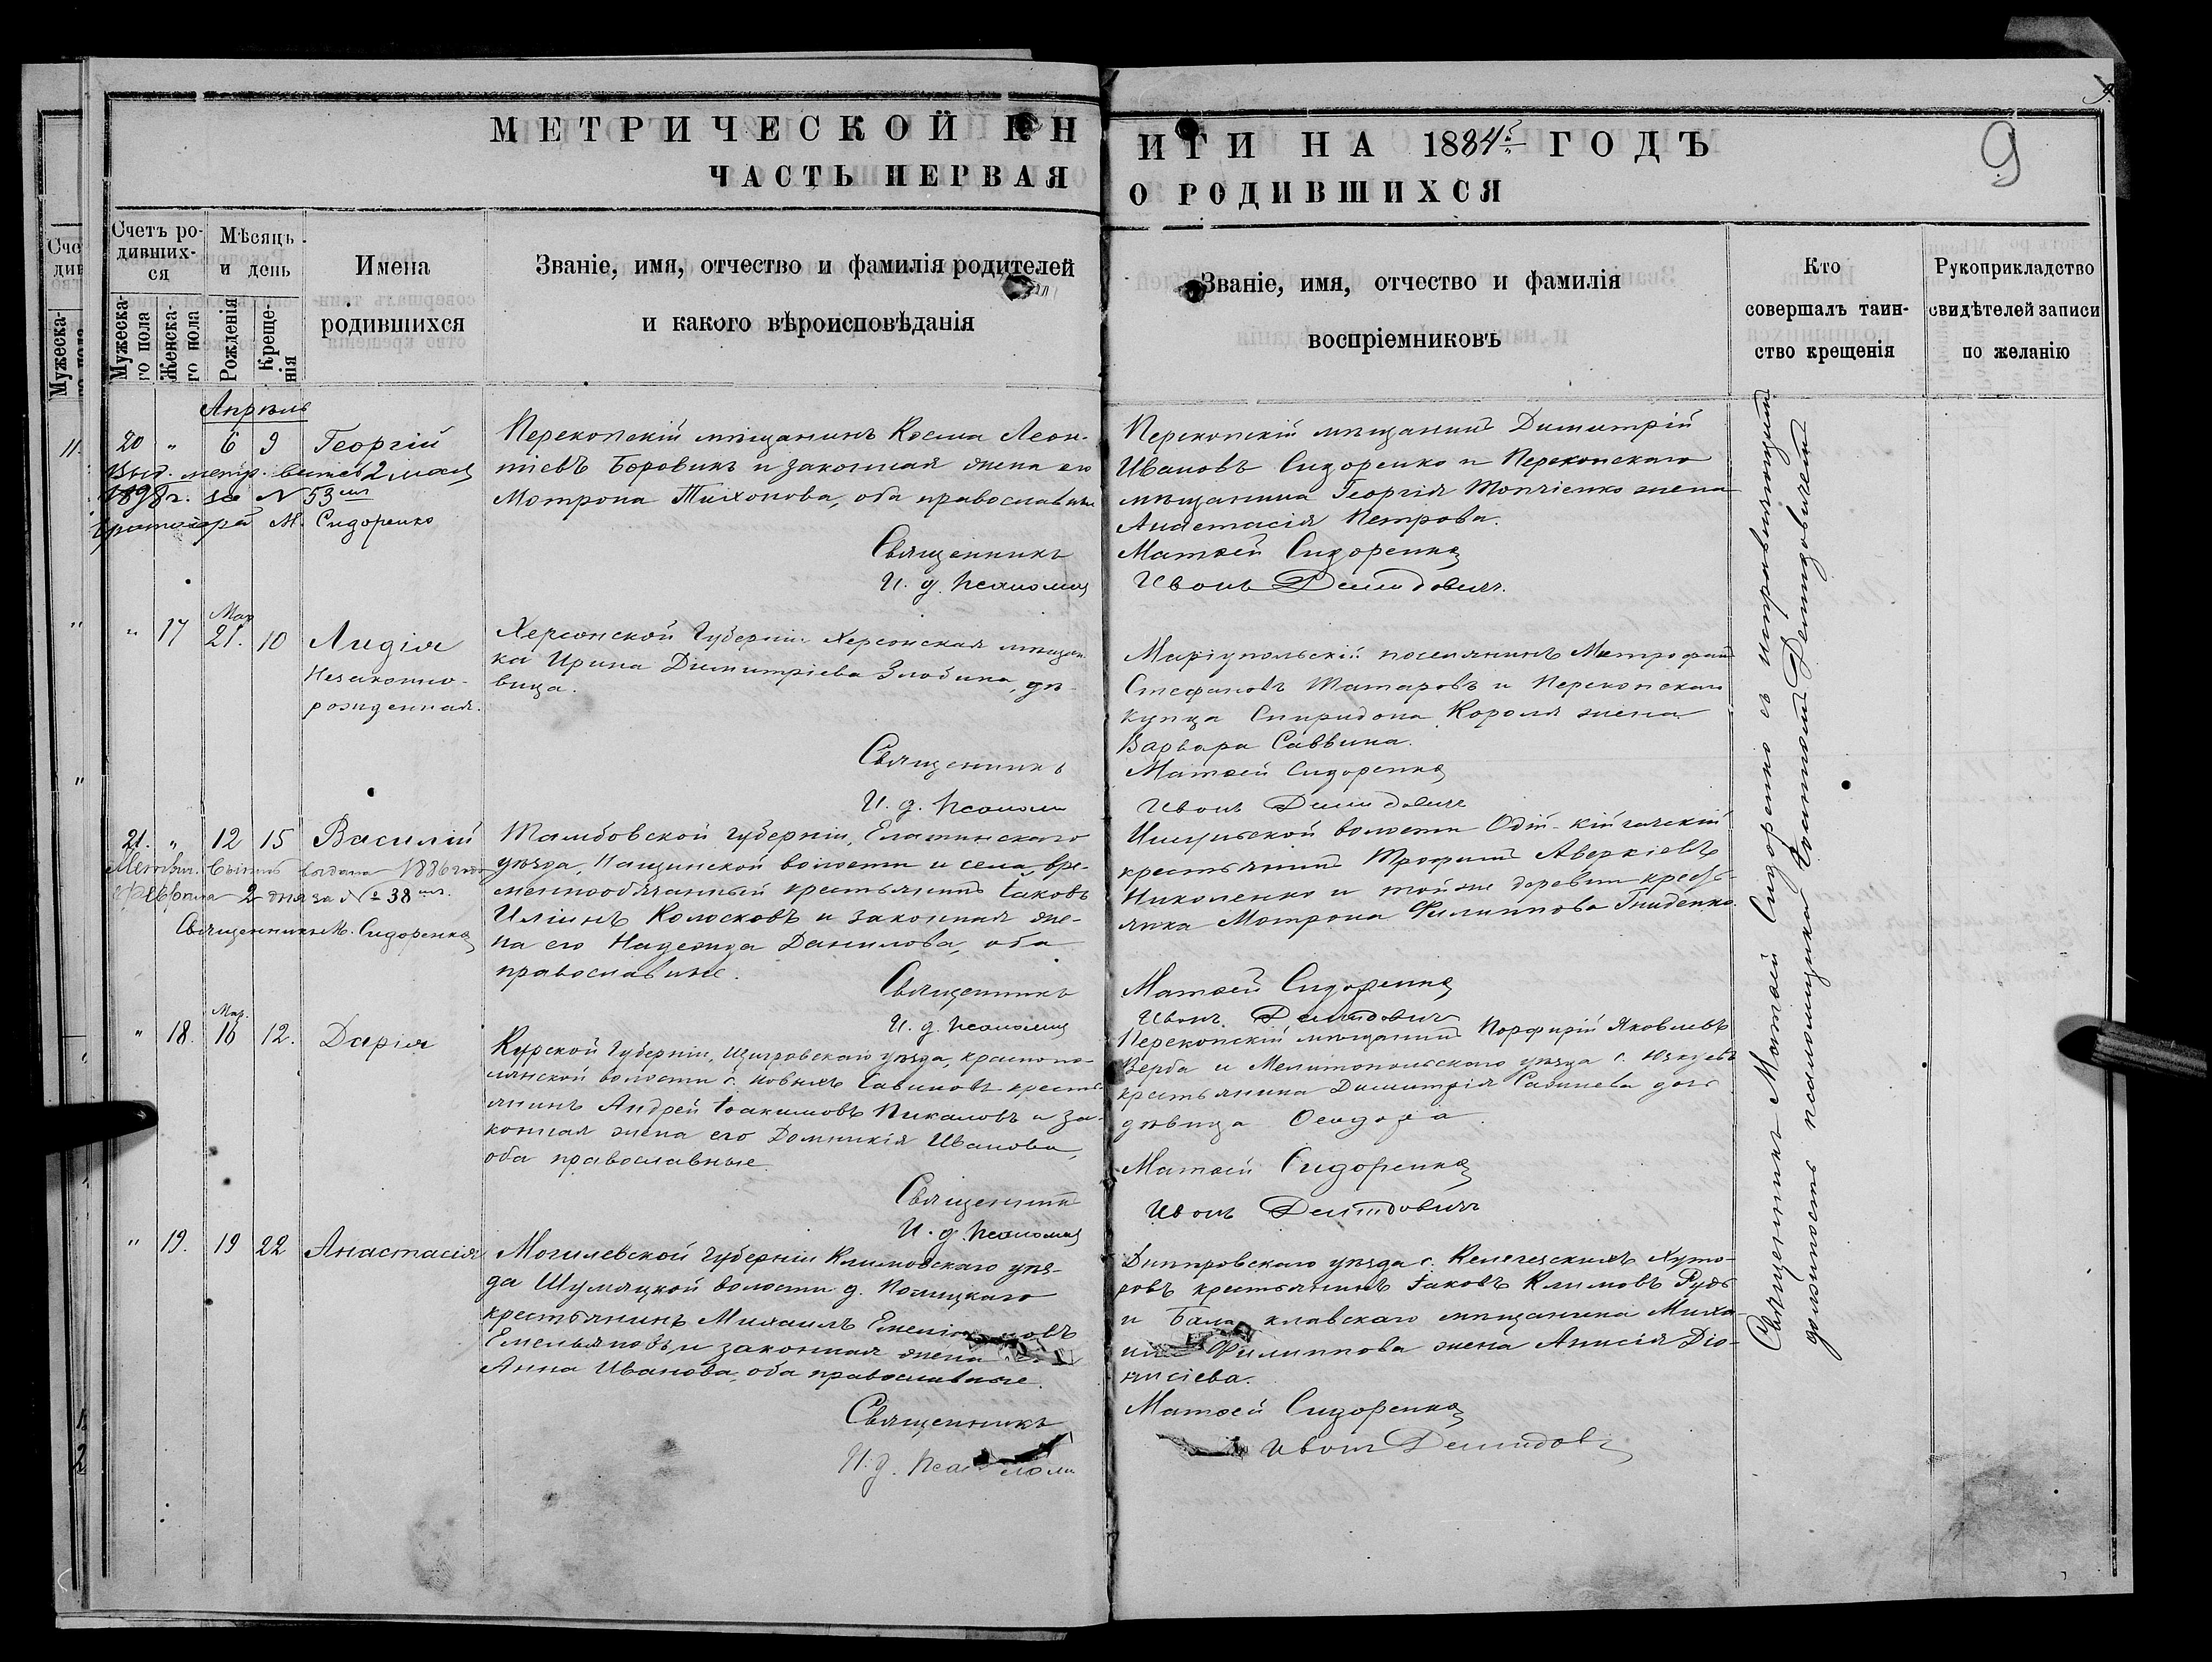 МЕТРИЧЕСКОЙ КНИГИ НА 1884й ГОДЪ
ЧАСТЬ ПЕРВАЯ О РОДИВШИХСЯ
9
Счетъ родившихся
Мужескаго пола
Женскаго пола
Мѣсяцъ и день
Рожденія
Крещенія
Имена родившихся
Званіе, имя, отчество и фамилія родителей
и какого вѣроисповѣданія
Званіе, имя, отчество и фамилія
воспріемниковъ
Кто
совершалъ таин-
ство крещенія
Рукоприкладство
свидѣтелей записи
по желанію
Апрѣль
20 " 6 9 Георгій
Выд. метр. выпись 2 мая
1898 г. за № 53мъ
М. Сидоренко
Перекопскій мѣщанинъ Косма Леон-
тіевъ Боровикъ и законная жена его
Мотрона Тихонова, оба православные
Священникъ
И. д. псаломщ
Перекопскій мѣщанинъ Димитрій
Ивановъ Сидоренко и Перекопскаго
мѣщанина Георгія Топчіенко жена
Анастасія Петрова.
Матѳей Сидоренко
Иванъ Демидовичъ.
" 17 Мар. 21. 10 Лидія
Незаконно-
рожденная.
Херсонской Губерніи Херсонская мѣщан
ка Ирина Димитріева Злобина, дѣ-
вица.
Священникъ
И. д. псалом
Маріупольскій поселянинъ Митрофан
Стефановъ Татаровъ и Перекопскаго
купца Спиридона Короля жена
Варвара Саввина.
Матѳей Сидоренко
Иванъ Демидовичъ
21. " 12 15 Василій
Метрич. выпись выдана 1886 года
Февраля 2 дня за № 38мъ.
Священникъ М. Сидоренко
Тамбовской губерніи, Елатинскаго
уѣзда, Пащинской волости и села, вре-
меннообязанный крестьянинъ Іаковъ
Иліинъ Колосковъ и законная же-
на его Надежда Данилова, оба
православные.
Священникъ
И. д. псаломщ
Ишунской волости
крестьянинъ Трофимъ Аверкіевъ
Николенко и той же деревни кресть-
янка Мотрона Филиппова Гниденко.
Матѳей Сидоренко
Иванъ Демидовичъ
" 18. Мар. 16 12. Дарія
Курской Губерніи, Щигровскаго уѣзда, краснопо-
лянской волости с. новыхъ Савиновъ кресть
янинъ Андрей Іоакимовъ Пикаловъ и за-
конная жена его Домникія Иванова,
оба православные.
Священникъ
И. д. псаломщ
Перекопскій мѣщанинъ Порфирій Яковлевъ
Верба и Мелитопольскаго уѣзда с.
крестьянина Димитрія дочь
дѣвица Ѳеодора.
Матѳей Сидоренко
Иванъ Демидовичъ
" 19. 19 22 Анастасія
Могилевской Губерніи Климовскаго уѣз-
да Шумяцкой волости д. Полицкаго
крестьянинъ Михаилъ
Емельяновъ и законная жена
Анна Иванова, оба православные.
Священникъ
И. д. псаломщ
Днѣпровскаго уѣзда с. Келегейскихъ Хуто-
ровъ крестьянинъ Іаковъ Климовъ Рудь
и Балаклавскаго мѣщанина Миха-
ила Филиппова жена Анисія Діо-
нисіева.
Матѳей Сидоренко
Иванъ Демидов
Священникъ Матѳей Сидоренко съ исправляющимъ
должность псаломщика Демидовичемъ